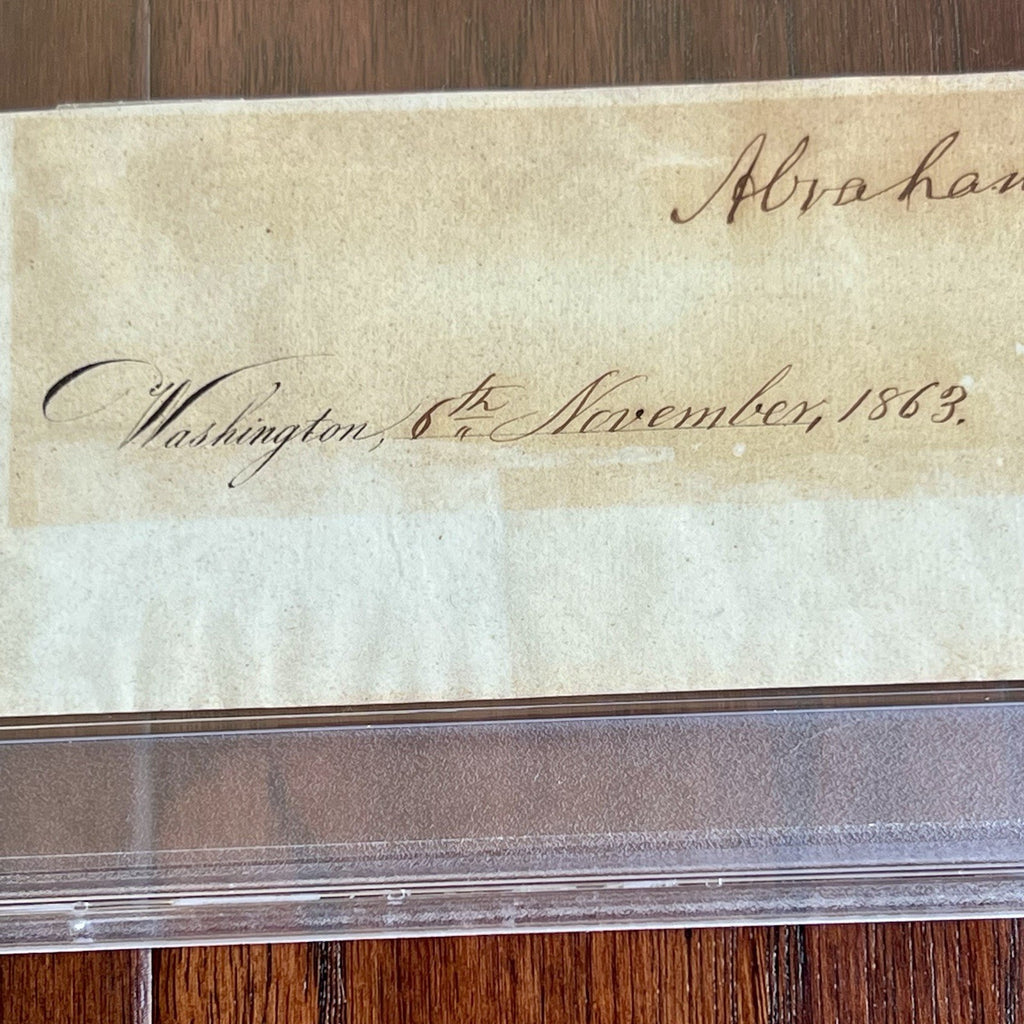 Abraham
Washington, 6th November, 1863.